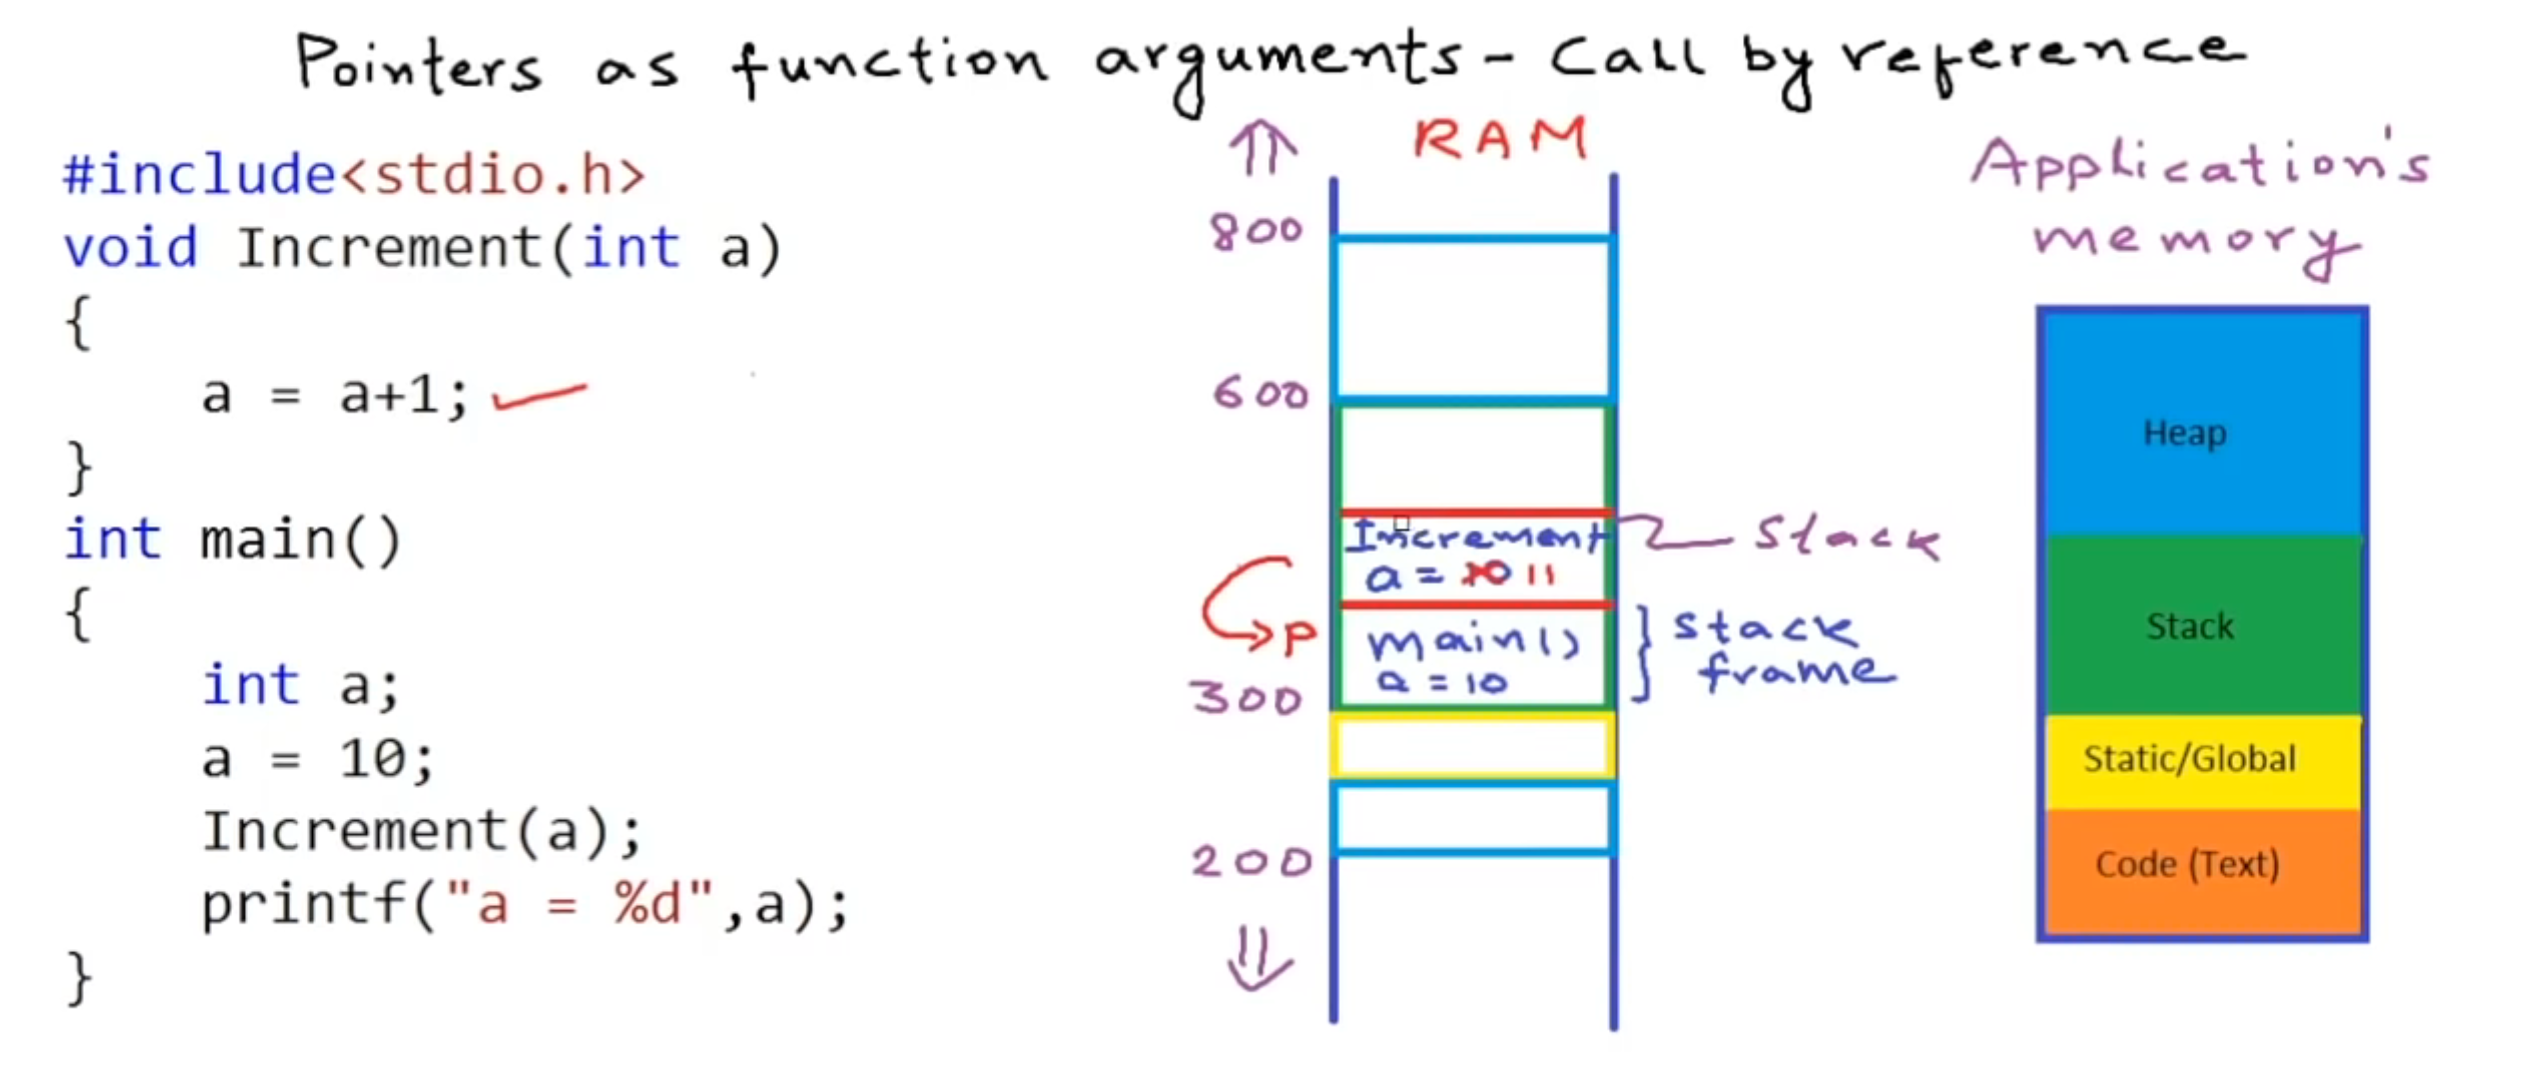 Pointers as function arguments - Call by reference
#include<stdio.h>
void Increment(int a)
{
    a = a+1;
}
int main()
{
    int a;
    a = 10;
    Increment(a);
    printf("a = %d",a);
}
RAM
800
600
Increment
a = 10 11
Stack
P
main()
a = 10
stack
frame
300
200
Application's
memory
Heap
Stack
Static/Global
Code (Text)